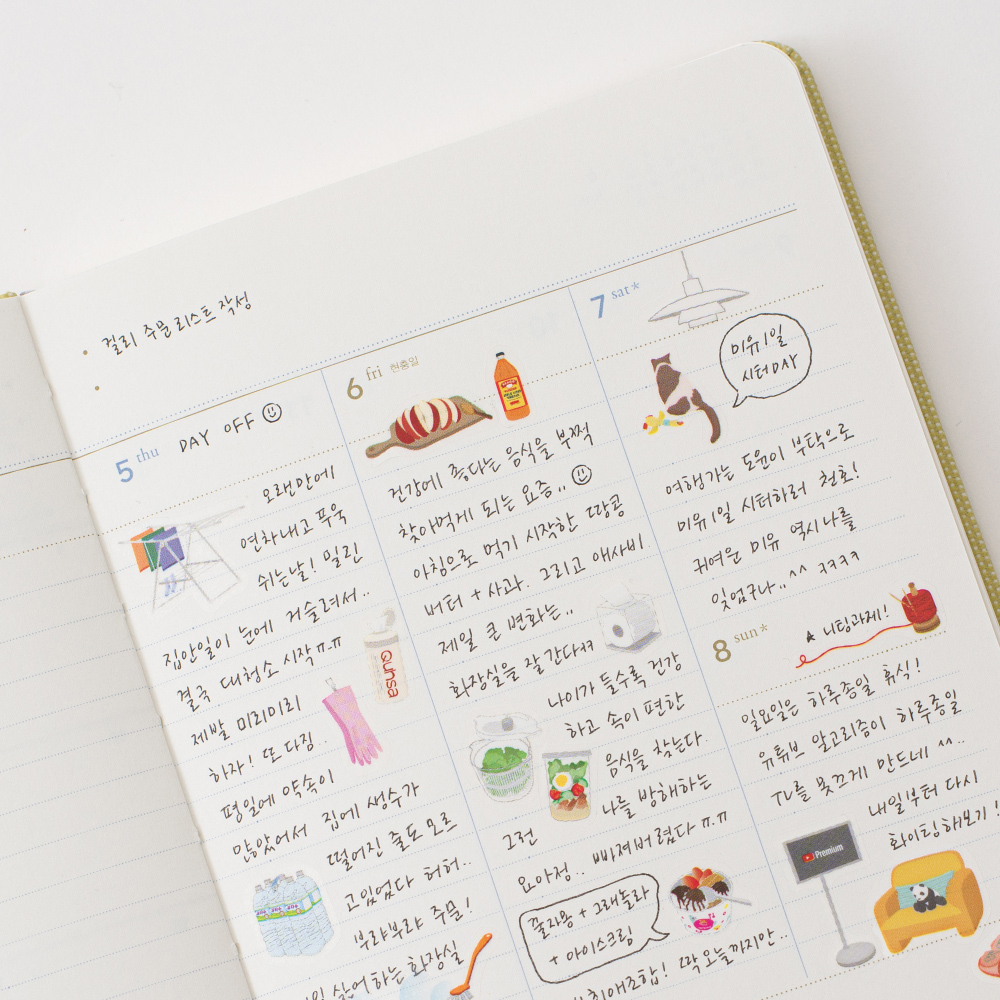 컬리 주문리스트 작성
5 thu DAY OFF
오랜만에
연차내고 푸욱
쉬는날! 밀린
집안일이 눈에 거슬려서..
결국 대청소 시작ㅠㅠ
Quhsa
제발 미리미리
하자! 또 다짐
평일에 약속이
많았어서 집에 생수가
떨어진 줄도 모르
고있었다 허허..
부랴부랴 주문!
싫어하는 화장실
6 fri 현충일
건강에 좋다는 음식을 부쩍
찾아먹게 되는 요즘..
아침으로 먹기 시작한 땅콩
버터 + 사과. 그리고 애사비.
제일 큰 변화는..
화장실을 잘 간다ㅋㅋ
나이가 들수록 건강
하고 속이 편한
음식을 찾는다.
나를 방해하는
그런
요아정.. 빠져버렸다 ㅠ.ㅠ
꿀자몽 + 그래놀라
+ 아이스크림
최애조합! 딱 오늘까지만..
7 sat*
미유 1일
시터 DAY
여행가는 도윤이 부탁으로
미유 1일 시터하러 천호!
귀여운 미유 역시나를
잊었구나..^^ ㅋㅋㅋㅋ
8 sun*
★ 니팅과제!
일요일은 하루종일 휴식!
유튜브 알고리즘이 하루종일
TV를 못끄게 만드네 ^^..
내일부터 다시
화이팅해보기!
Premium